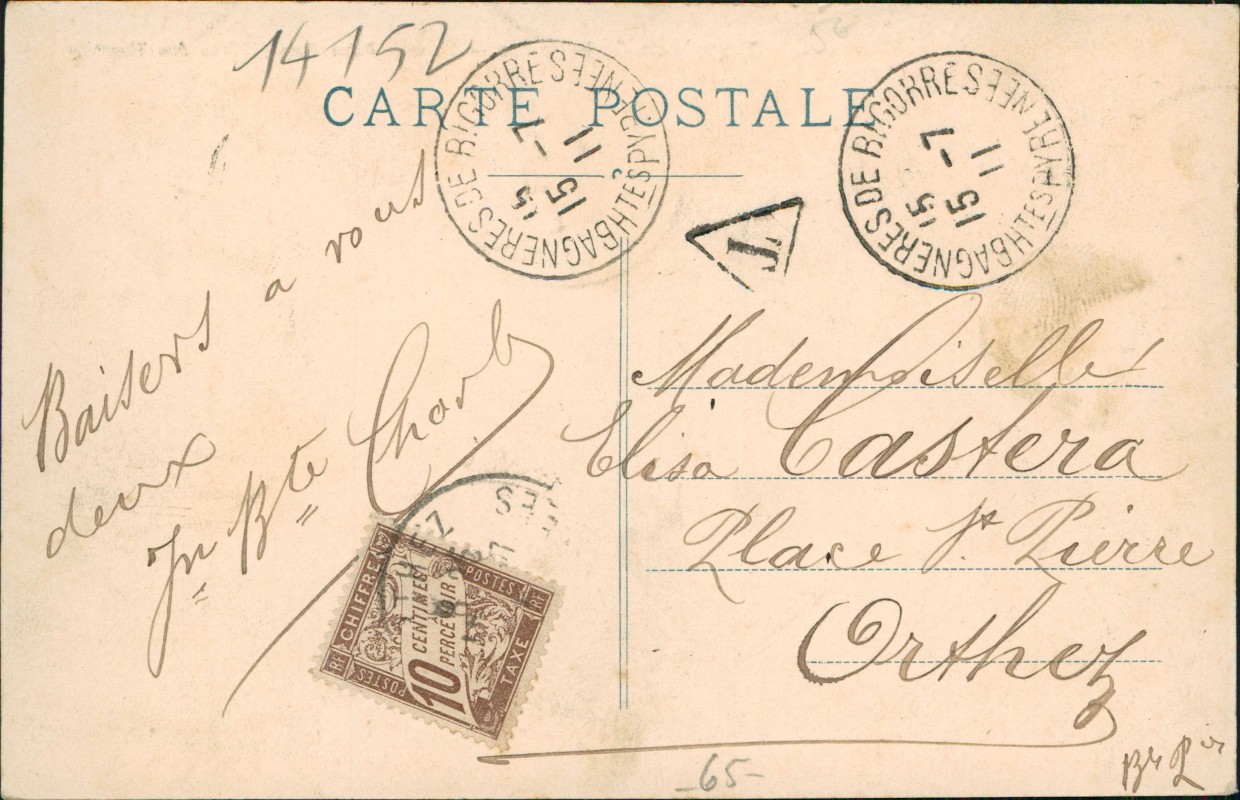 14152
CARTE POSTALE
BAGNERES DE BIGORRE HTES PYRENEES
15 15
-7
11
BAGNERES DE BIGORRE HTES PYRENEES
15 15
-7
11
T
Baisers a vous
deux
Jn Bte
Mademoiselle
Elisa Castera
Place St Pierre
Orthez
CHIFFRE TAXE
POSTES RF
10 CENTIMES À PERCEVOIR
POSTES RF
-65-